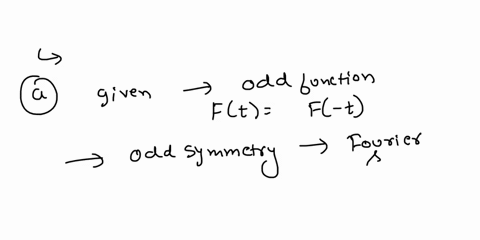 ↳
ⓐ given → odd function
F(t) = F(-t)
→ odd symmetry → Fourier
s